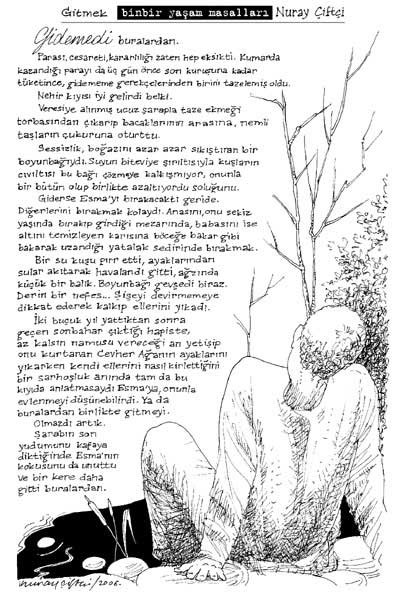 Gitmek binbir yaşam masalları Nuray Çiftçi
Gidemedi buralardan.
Parası, cesareti, kararlılığı zaten hep eksikti. Kumarda
kazandığı parayı da üç gün önce son kuruşuna kadar
tüketince, gidememe gerekçelerinden birini tazelemiş oldu.
Nehir kıyısı iyi gelirdi belki.
Veresiye alınmış ucuz şarapla taze ekmeği
torbasından çıkarıp bacaklarının arasına, nemli
taşların çukuruna oturttu.
Sessizlik, boğazını azar azar sıkıştıran bir
boyunbağıydı. Suyun biteviye şırıltısıyla kuşların
cıvıltısı bu bağı çözmeye kalkışmıyor, onunla
bir bütün olup birlikte azaltıyordu soluğunu.
Giderse Esma'yı bırakacaktı geride.
Diğerlerini bırakmak kolaydı. Anasını, onu sekiz
yaşında bırakıp girdiği mezarında, babasını ise
altını temizleyen karısına böceğe bakar gibi
bakarak uzandığı yatalak sedirinde bırakmak.
Bir su kuşu pırr etti, ayaklarından
sular akıtarak havalandı gitti, ağzında
küçük bir balık. Boyunbağı gevşedi biraz.
Derin bir nefes... Şişeyi devirmemeye
dikkat ederek kalkıp ellerini yıkadı.
İki buçuk yıl yattıktan sonra
geçen sonbahar çıktığı hapiste,
az kalsın namusu vereceği an yetişip
onu kurtaran Cevher Ağanın ayaklarını
yıkarken kendi ellerini nasıl kirlettiğini
bir sarhoşluk anında tam da bu
kıyıda anlatmasaydı Esma'ya, onunla
evlenmeyi düşünebilirdi. Ya da
buralardan birlikte gitmeyi.
Olmazdı artık.
Şarabın son
yudumunu kafaya
diktiğinde Esma'nın
kokusunu da unuttu
ve bir kere daha
gitti buralardan.
nuray çiftçi/2006.